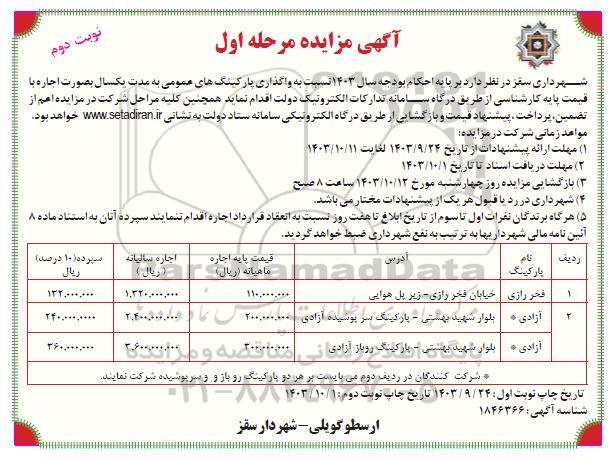 نوبت دوم
آگهی مزایده مرحله اول
شهرداری سقز در نظر دارد بر پایه احکام بودجه سال ۱۴۰۳ نسبت به واگذاری پارکینگ های عمومی به مدت یکسال بصورت اجاره با
قیمت پایه کارشناسی از طریق درگاه سامانه تدارکات الکترونیک دولت اقدام نماید همچنین کلیه مراحل شرکت در مزایده اعم از
تضمین، پرداخت، پیشنهاد قیمت و بازگشایی از طریق درگاه الکترونیکی سامانه ستاد دولت به نشانی www.setadiran.ir خواهد بود.
مواعد زمانی شرکت در مزایده:
۱) مهلت ارائه پیشنهادات از تاریخ ۱۴۰۳/۹/۲۴ لغایت ۱۴۰۳/۱۰/۱۱
۲) مهلت دریافت اسناد تا تاریخ ۱۴۰۳/۱۰/۱
۳) بازگشایی مزایده روز چهارشنبه مورخ ۱۴۰۳/۱۰/۱۲ ساعت ۸ صبح
۴) شهرداری در رد یا قبول هر یک از پیشنهادات مختار می باشد.
۵) هرگاه برندگان نفرات اول تا سوم از تاریخ ابلاغ تا هفت روز نسبت به انعقاد قرارداد اجاره اقدام ننمایند سپرده آنان به استناد ماده ۸
آئین نامه مالی شهرداریها به ترتیب به نفع شهرداری ضبط خواهد گردید.
ردیف | نام پارکینگ | آدرس | قیمت پایه اجاره ماهیانه (ریال) | اجاره سالیانه (ریال) | سپرده (۱۰ درصد) ریال
۱ | فخر رازی | خیابان فخر رازی- زیر پل هوایی | ۱۱۰.۰۰۰.۰۰۰ | ۱.۳۲۰.۰۰۰.۰۰۰ | ۱۳۲.۰۰۰.۰۰۰
۲ | آزادی * | بلوار شهید بهشتی - پارکینگ سر پوشیده آزادی | ۲۰۰.۰۰۰.۰۰۰ | ۲.۴۰۰.۰۰۰.۰۰۰ | ۲۴۰.۰۰۰.۰۰۰
آزادی * | بلوار شهید بهشتی - پارکینگ روباز آزادی | ۳۰۰.۰۰۰.۰۰۰ | ۳.۶۰۰.۰۰۰.۰۰۰ | ۳۶۰.۰۰۰.۰۰۰
* شرکت کنندگان در ردیف دوم می بایست بر هر دو پارکینگ رو باز و و سرپوشیده شرکت نمایند.
تاریخ چاپ نوبت اول: ۱۴۰۳/۹/۲۴ تاریخ چاپ نوبت دوم: ۱۴۰۳/۱۰/۱
شناسه آگهی: ۱۸۴۶۳۶۶
ارسطو گویلی- شهردار سقز